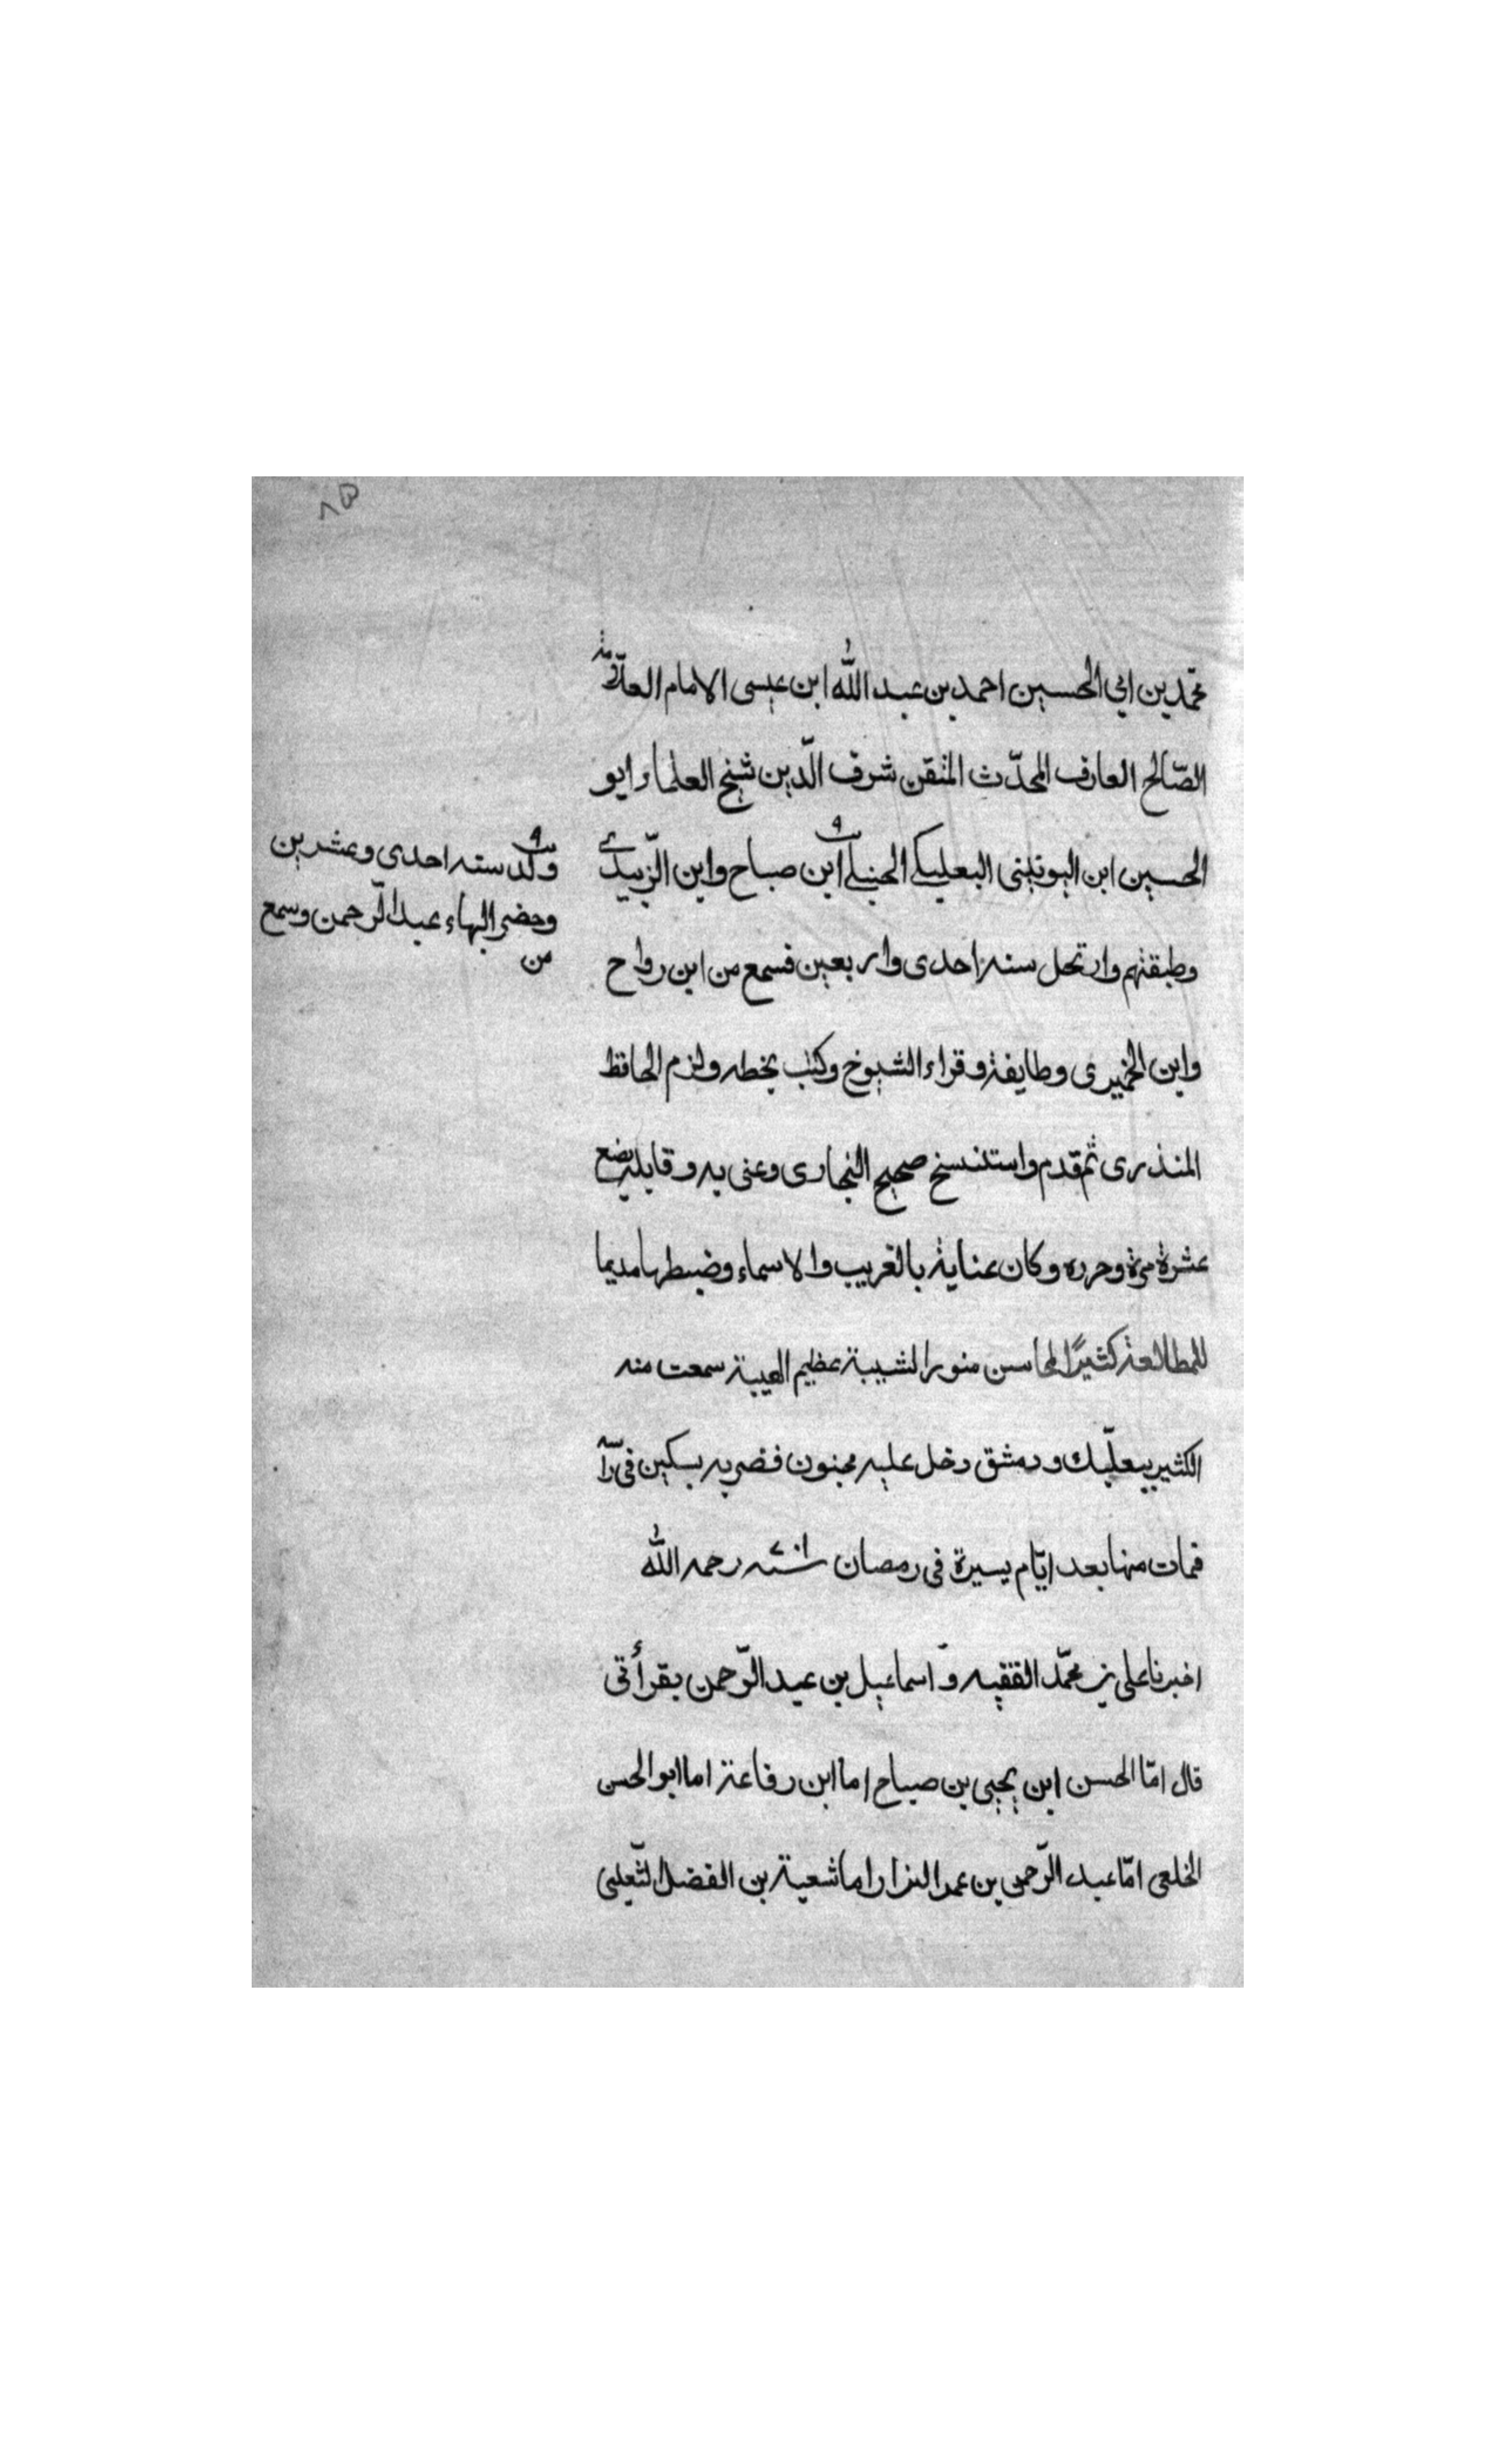 ٨٥
محمّد بن ابي الحسين احمد بن عبد الله ابن عيسى الامام العلّامة
الصّالح العارف المحدّث المتقن شرف الّدين شيخ العلماء ابو
الحسين ابن اليونيني البعلبكي الحنبلي ابن صباح وابن الزّبيدي
ولد سنه احدى وعشرين
وحضر البهاء عبد الرّحمن وسمع
من
وطبقتهم وارتحل سنه احدى واربعين فسمع من ابن رواح
وابن الجميرى وطايفة وقراء الشيوخ وكتب بخطه ولزم الحافظ
المنذرى ثم قدم واستنسخ صحيح البخارى وعنى به وقابله بضع
عشرة مرة وحرره وكان عناية بالغريب والاسماء وضبطها مديما
للمطالعة كثيرًا لمحاسن منور الشيبة عظيم الهيبة سمعت منه
الكثير ببعلّبك ودمشق دخل عليه مجنون فضربه بسكين فى رأ
فمات منها بعد ايّام يسيرة فى رمصان رحمه الله
اخبرنا على بن محمّد الفقيه و اسماعيل بن عبد الرّحمن بقرأتى
قال امّا الحسن ابن يحيى بن صباح اما ابن رفاعة اما ابو الحسن
الخلعى امّا عبد الرّحمن بن عمر البزار اما شعبة بن الفضل الثّعلبى